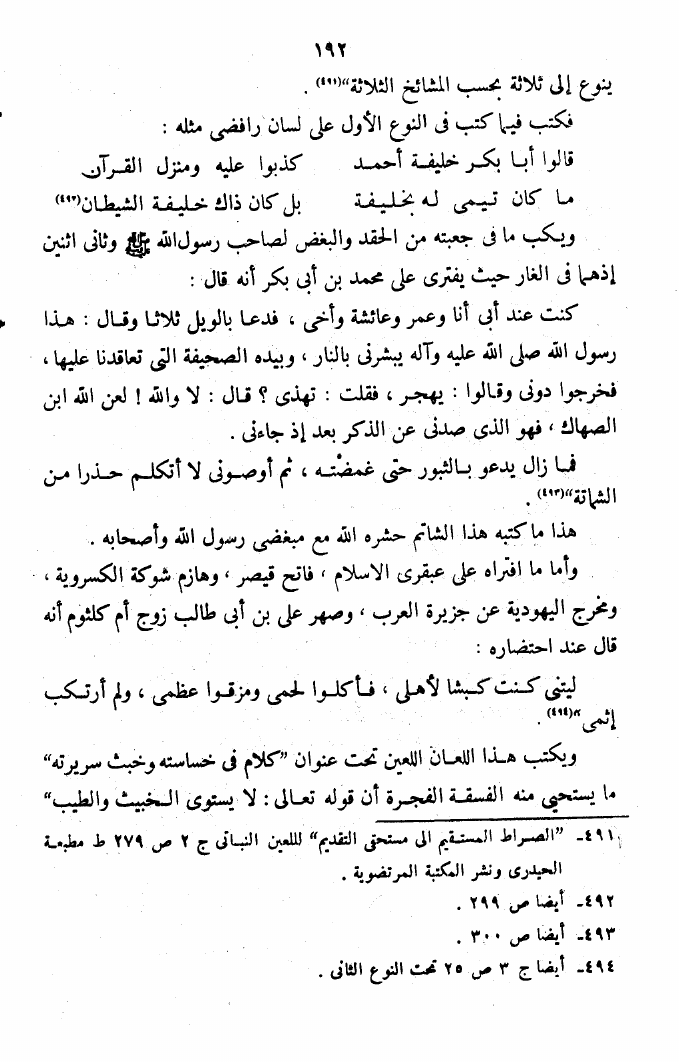 ١٩٢
ينوع إلى ثلاثة بحسب المشائخ الثلاثة“(٤٩١) .
فكتب فيما كتب فى النوع الأول على لسان رافضى مثله :
قالوا أبا بكر خليفة أحمد كذبوا عليه ومنزل القرآن
ما كان تيمى له بخليفة بل كان ذاك خليفة الشيطان(٤٩٢)
ويكب ما فى جعبته من الحقد والبغض لصاحب رسول الله ﷺ وثانى اثنين
إذهما فى الغار حيث يفترى على محمد بن أبى بكر أنه قال :
كنت عند أبى أنا وعمر وعائشة وأخى ، فدعا بالويل ثلاثا وقال : هذا
رسول الله صلى الله عليه وآله يبشرنى بالنار ، وبيده الصحيفة التى تعاقدنا عليها ،
فخرجوا دونى وقالوا : يهجر ، فقلت : تهذى ؟ قال : لا والله ! لعن الله ابن
الصهاك ، فهو الذى صدنى عن الذكر بعد إذ جاءنى .
فما زال يدعو بالثبور حتى غمضته ، ثم أوصونى لا أتكلم حذرا من
الشماتة“(٤٩٣) .
هذا ما كتبه هذا الشاتم حشره الله مع مبغضى رسول الله وأصحابه .
وأما ما افتراه على عبقرى الاسلام ، فاتح قيصر ، وهازم شوكة الكسروية ،
ومخرج اليهودية عن جزيرة العرب ، وصهر على بن أبى طالب زوج أم كلثوم أنه
قال عند احتضاره :
ليتنى كنت كبشا لأهلى ، فأكلوا لحمى ومزقوا عظمى ، ولم أرتكب
إثمى“(٤٩٤) .
ويكتب هذا اللعان اللعين تحت عنوان ”كلام فى خساسته وخبث سريرته“
ما يستحيى منه الفسقة الفجرة أن قوله تعالى : لا يستوى الخبيث والطيب“
٤٩١ـ ”الصراط المستقيم الى مستحقى التقديم“ للعين النباتى ج ٢ ص ٢٧٩ ط مطبعة
الحيدرى ونشر المكتبة المرتضوية .
٤٩٢ـ أيضا ص ٢٩٩ .
٤٩٣ـ أيضا ص ٣٠٠ .
٤٩٤ـ أيضا ج ٣ ص ٢٥ تحت النوع الثانى .